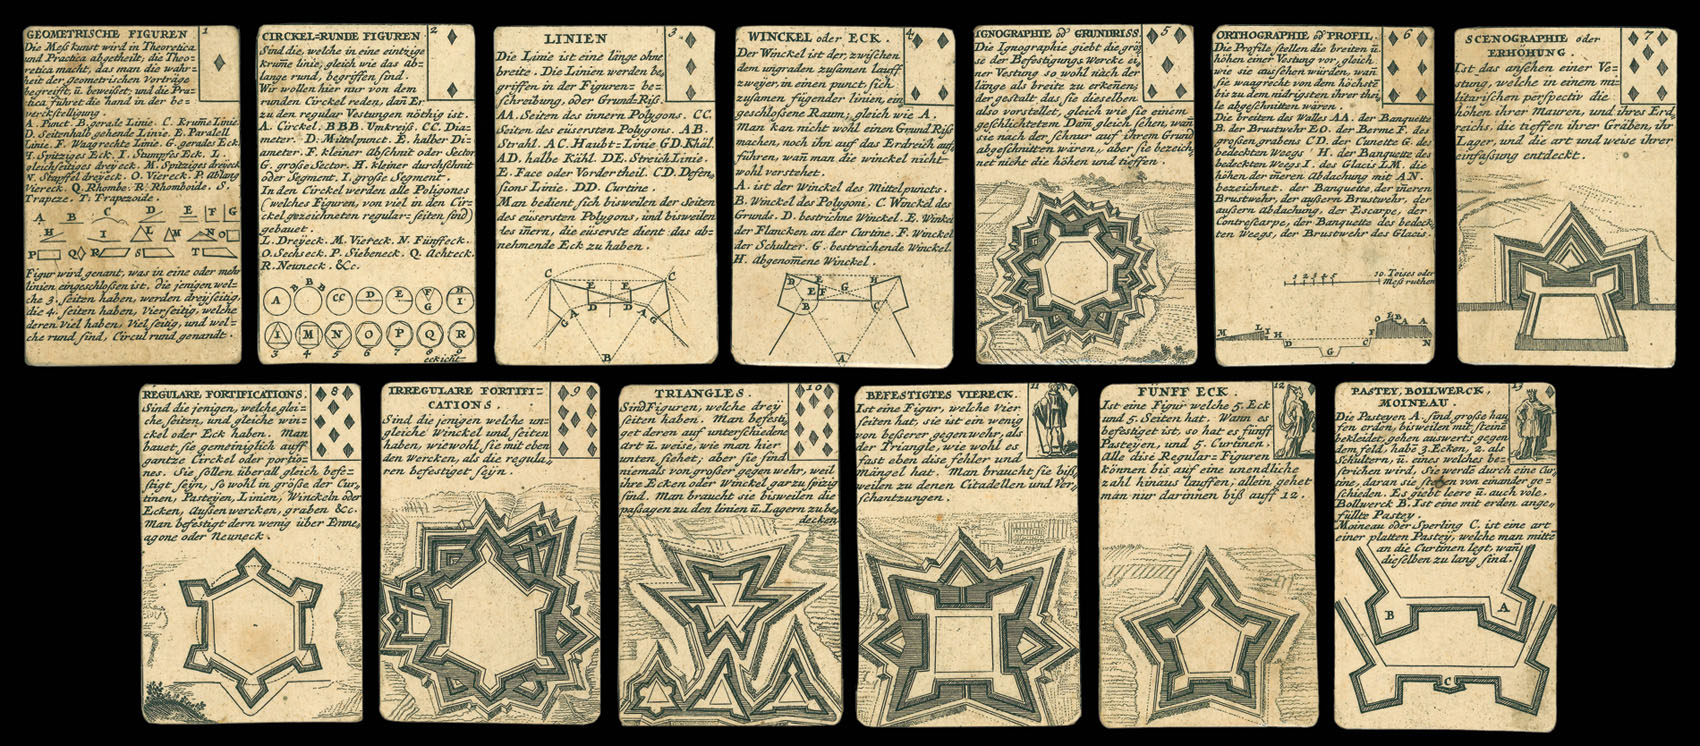 1
GEOMETRISCHE FIGUREN
Die Meß kunst wird in Theoretica
und Practica abgetheilt, die Theo=
retica macht, das man die wahr=
heit der geometrischen Vorträge
begreifft, ũ. beweißet; und die Pra=
tica führet die hand in der be=
verckstelligung.
A. Punct. B. gerade Linie. C. Krum̃e Linie
D. Seitenhalb gehende Linie. E. Paralell
Linie. F. Waagrechte Linie. G. gerades Eck
H. Spitziges Eck. I. Stumpfes Eck. L.
gleichseitiges dreÿeck. M. Spitziges dreÿeck
N. Stapffel dreÿeck. O. Viereck. P. ablang
Viereck. Q. Rhombe. R. Rhomboide. S.
Trapeze. T. Trapezoide.
A B C D E F G
H I L M N O
P Q R S T
Figur wird genant, was in eine oder mehr
linien eingeschloßen ist. Die jenigen wel=
che 3. seiten haben, werden dreÿseitig,
die 4. seiten haben, Vierseitig, welche
deren Viel haben, Viel seitig, und wel=
che rund sind, Circul rund genandt.
2
CIRCKEL=RUNDE FIGUREN
Sind die, welche in eine eintzige
krum̃e linie, gleich wie das ab=
lange rund, begriffen sind.
Wir wollen hier nur von dem
runden Circkel reden, dañ Er
zu den regular Vestungen nöthig ist.
A. Circkel. BBB. Umkreiß. CC. Dia=
meter. D. Mittel punct. E. halber Di=
ameter. F. kleiner abschnit oder Sector
G. große Sector. H. kleiner durchschnit
oder Segment. I. große Segment.
In den Circkel werden alle Poligones
(welches Figuren, von viel in den Cir=
ckel gezeichneten regular=seiten sind)
gebauet.
L. Dreÿeck. M. Viereck. N. Fünffeck.
O. Sechseck. P. Siebeneck. Q. Achteck.
R. Neuneck. &c.
A B B B CC D E F G H I
I M N O P Q R
3 4 5 6 7 8 9
eckicht
3
LINIEN
Die Linie ist eine länge ohne
breite. Die Linien werden be,,
griffen in der Figuren=be=
schreibung, oder Grund=Riß.
AA. Seiten des innern Polygons. CC.
Seiten des eüsersten Polygons. AB.
Strahl. AC. Haubt=Linie GD. Khäl.
AD. halbe Kähl. DE. Streich Linie.
E. Face oder Vordertheil. CD. Defen=
sions Linie. DD. Curtine.
Man bedient, sich bisweilen der Seiten
des eüsersten Polygons, und bisweilen
des iñern, die eüserste dient das ab=
nehmende Eck zu haben.
C C
E E
G A D D A G
B
4
WINCKEL oder ECK.
Der Winckel ist der, zwischen
dem ungraden zusamen lauff
zweÿer, in einen punct, sich
zusamen fügender linien, ein
geschlossene Raum; gleich wie A.
Man kan nicht wohl einen Grund Riß
machen, noch ihn auf das Erdreich auf,,
führen, wañ man die winckel nicht
wohl verstehet.
A. ist der Winckel des Mittelpuncts.
B. Winckel des Polygoni. C. Winckel des
Grunds. D. bestrichne Winckel. E. Winkel
der Flancken an der Curtine. F. Winckel
der Schulter. G. bestreichende Winckel.
H. abgenom̃ene Winckel.
D E G H
E F
B C
A
5
IGNOGRAPHIE od̃ GRUNDRISS.
Die Ignographie giebt die grö=
se der Befestigungs Wercke ei,,
ner Vestung so wohl nach der
länge als breite zu erkeñen;
der gestalt, das sie dieselben
also vorstellet, gleich wie sie einem
geschlichteten Dam̃ gleich sehen, wañ
sie nach der schnur auf ihrem Grund
abgeschnitten wären, aber sie bezeich,,
net nicht die höhen und tieffen.
6
ORTHOGRAPHIE od̃ PROFIL.
Die Profile stellen die breiten ũ.
höhen einer Vestung vor, gleich
wie sie aussehen würden, wañ
sie waagrecht von dem höchstẽ
bis zu dem nidrigsten ihrer thei,,
le abgeschnitten wären.
Die breiten des Walles AA. der Banquette
B. der Brustwehr EO. der Berme F. des
großen grabens CD. der Cunette G. des
bedeckten Weegs I. H. der Banquette des
bedeckten Weegs I. des Glacis LM. die
höhen der iñeren Abdachung mit AN.
bezeichnet. der Banquette, der iñeren
Brustwehr, der außern Brustwehr, der
außern Abdachung, der Escarpe, der
Contrescarpe, der Banquette des bedeck=
ten Weegs, der Brustwehr des Glacis.
1 2 3 4 5 10. Toises oder
Meß ruthen
M L I H D G C F O E B A A N
7
SCENOGRAPHIE oder
ERHÖHUNG.
Ist das ansehen einer Ve=
stung, welche in einem mi=
litarischen perspectiv die
höhen ihrer Mauren, und ihres Erd,,
reichs, die tieffen ihrer Gräben, ihr
Lager, und die art und weise ihrer
einfassung entdeckt.
8
REGULARE FORTIFICATIONS.
Sind die jenigen, welche glei=
che, seiten, und gleiche win=
ckel oder Eck haben. Man
bauet sie gemeiniglich auff
gantze Circkel oder portio=
nes. Sie sollen überall gleich befe=
stigt seÿn, so wohl in größe der Cur,,
tinen, Pasteÿen, Linien, Winckeln oder
Ecken, außen wercken, graben &c.
Man befestigt dern wenig über Enne,,
agone oder Neuneck.
9
IRREGULARE FORTIFI=
CATIONS.
Sind die jenigen, welche un=
gleiche Winckel und seiten
haben, wiewohl sie mit eben
den Wercken, als die regula,,
ren befestiget seÿn.
10
TRIANGLES.
Sind Figuren, welche dreÿ
seiten haben. Man befesti,,
get deren auf unterschiedene
art u. weise, wie man hier
unten siehet, aber sie sind
niemals von großer gegen wehr, weil
ihre Ecken oder Winckel gar zu spizig
sind. Man braucht sie bisweilen die
paßagen zu den linien ũ. Lagern zu be,,
decken
11
BEFESTIGTES VIERECK.
Ist eine Figur, welche Vier
seiten hat, sie ist ein wenig
von beßerer gegen wehr, als
der Triangle, wie wohl es
fast eben dise fehler und
mängel hat. Man braucht sie biß,,
weilen zu denen Citadellen und Ver,,
schantzungen.
12
FÜNFF ECK.
Ist eine Figur welche 5. Eck
und 5. Seiten hat. Wann es
befestiget ist, so hat es fünff
Pasteÿen, und 5. Curtinen.
Alle dise Regular=Figuren
können bis auf eine unendliche
zahl hinaus lauffen, allein gehet
man nur darinnen biß auff 12.
13
PASTEY, BOLLWERCK,
MOINEAU.
Die Pasteÿen A. sind große hau
fen erden, bisweilen mit steinẽ
bekleidet, gehen auswerts gegen
dem feld, habe 3. Ecken, 2. als
Schultern, ũ. eines welches be=
strichen wird, Sie werde durch eine Cur,,
tine, daran sie stoßen von einander ge=
schieden. Es giebt leere ũ. auch vole.
Bollwerck B. Ist eine mit erden ange,,
füllte Pasteÿ.
Moineau oder Sperling C. ist eine art
einer platten Pasteÿ, welche man mittẽ
an die Curtinen legt, wañ
dieselben zu lang sind.
B A
C